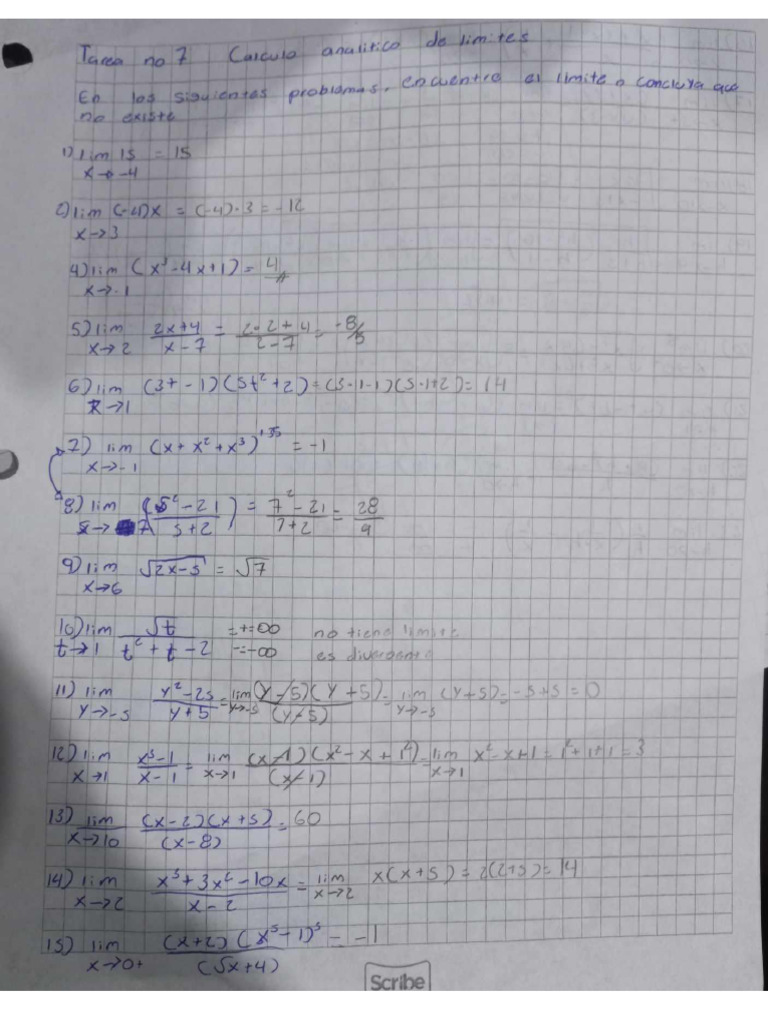 Tarea no 7 Calculo analitico de limites
En los siguientes problemas, encuentre el limite o concluya que
no existe
1) lim 15 = 15
x→-4
2) lim (-4)x = (-4)·3 = -12
x→3
4) lim (x³-4x+1) = 4
x→-1
5) lim 2x+4 / x-7 = 2·2+4 / 2-7 = -8/5
x→2
6) lim (3t-1)(5t²+2) = (3·1-1)(5·1+2) = 14
x→1
7) lim (x+x²+x³)¹³⁵ = -1
x→-1
8) lim (s²-21 / s+2) = 7²-21 / 7+2 = 28/9
s→7
9) lim √2x-5 = √7
x→6
10) lim √t / t²+t-2 =+∞ =-∞ no tiene limite
t→1 es divergente
11) lim y²-25 / y+5 = lim (y-5)(y+5) / (y-5) = lim (y+5) = -5+5 = 0
y→-5 y→-5 y→-5
12) lim x³-1 / x-1 = lim (x-1)(x²-x+1²) / (x-1) = lim x²-x+1 = 1²+1+1 = 3
x→1 x→1 x→1
13) lim (x-2)(x+5) / (x-8) = 60
x→10
14) lim x³+3x²-10x / x-2 = lim x(x+5) = 2(2+5) = 14
x→2 x→2
15) lim (x+2)(x⁵-1)³ / (√x+4) = -1
x→0+
Scribe